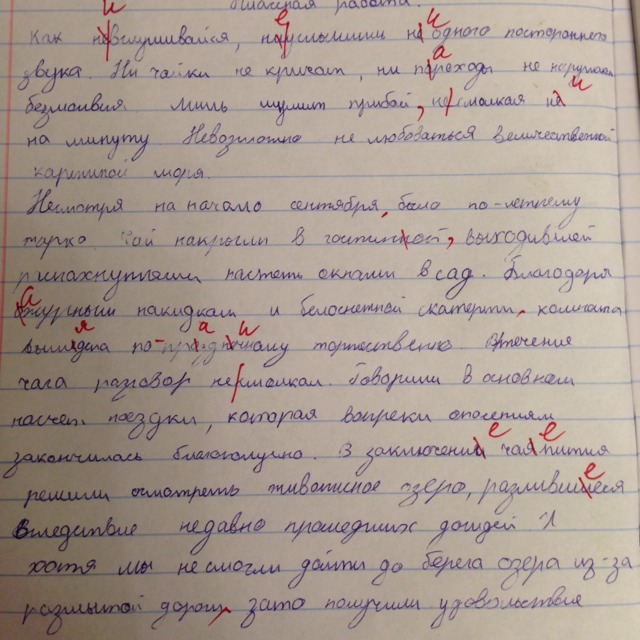 Письменная работа.
Как невслушивайся, неуслышишь не одного постороннего
звука. Ни чайки не кричат, ни пороходы не нарушают
безмолвия лишь шумит прибой, не смолкая не
на минуту. Невозможно не любоваться величественной
картиной моря.
Несмотря на начало сентября, было по-летнему
жарко. Чай накрыли в гостинной, выходившей
распахнутыми настеж окнами в сад. Благодаря
ожурным накидкам и белоснежной скатерти, комната
по- торжественно. Втечение
часа разговор несмолкал. Говорили в основном
насчет поездки, которая вопреки опасениям
закончилась благополучно. В заключении чаяпития
решили осмотреть живописное озеро, разлившиеся
вследствие недавно прошедших дождей И
хотя мы несмогли дойти до берега озера из-за
размытой дороги, зато получили удовольствие